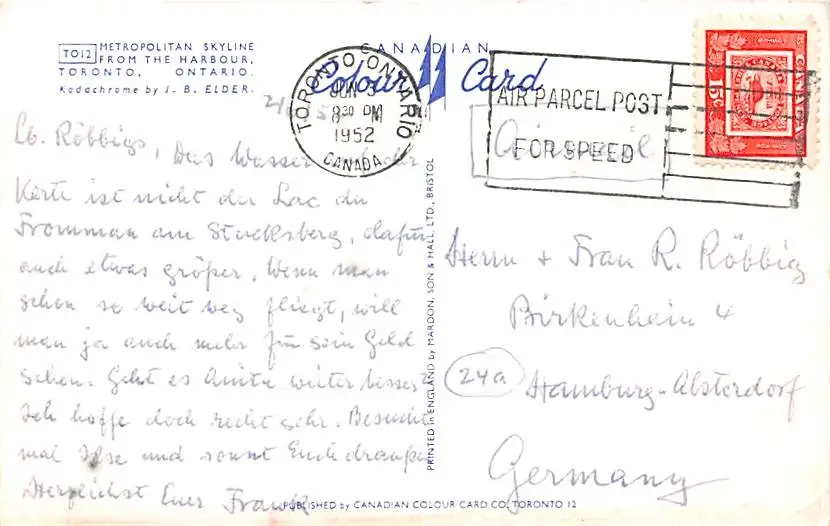 TO12 METROPOLITAN SKYLINE
FROM THE HARBOUR,
TORONTO, ONTARIO.
Kodachrome by J. B. ELDER.
CANADIAN
Colour Card
TORONTO ONTARIO
JUN 3
8 30 PM
1952
CANADA
AIR PARCEL POST
FOR SPEED
CANADA
15¢
Air mail
Lb. Röbbigs, Das Wasser der
Karte ist nicht der Lac du
Fromman am Stucksberg, dafür
auch etwas größer. Wenn man
schon so weit weg fliegt, will
man ja auch mehr für sein Geld
sehen. Geht es Anita weiter besser?
Ich hoffe doch recht sehr. Besucht
mal Ilse und sonnt Euch draußen
Herzlichst Euer Frank
Herrn + Frau R. Röbbig
Birkenhain 4
24a Hamburg-Alsterdorf
Germany
PRINTED in ENGLAND by MARDON, SON & HALL, LTD., BRISTOL
PUBLISHED by CANADIAN COLOUR CARD CO. TORONTO 12